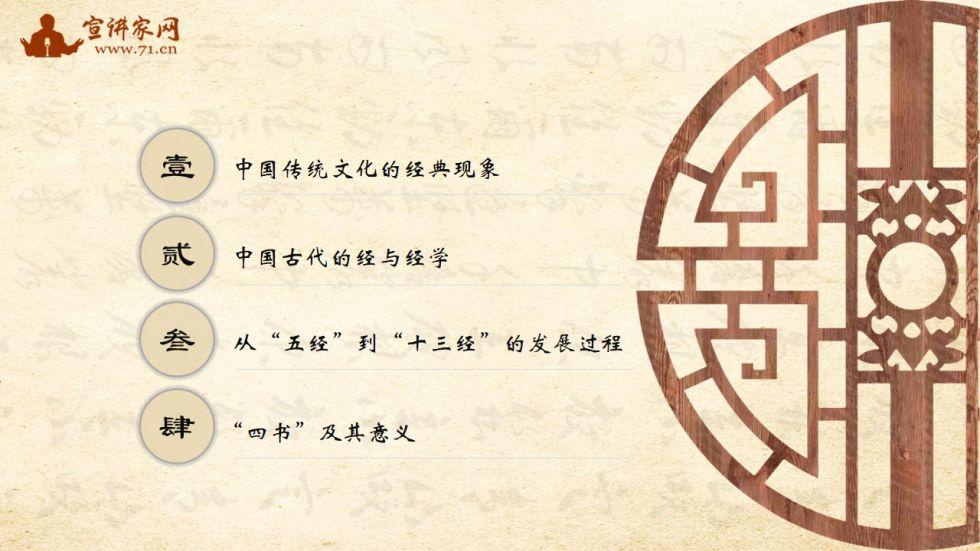 宣讲家网
www.71.cn
壹
中国传统文化的经典现象
贰
中国古代的经与经学
叁
从“五经”到“十三经”的发展过程
肆
“四书”及其意义